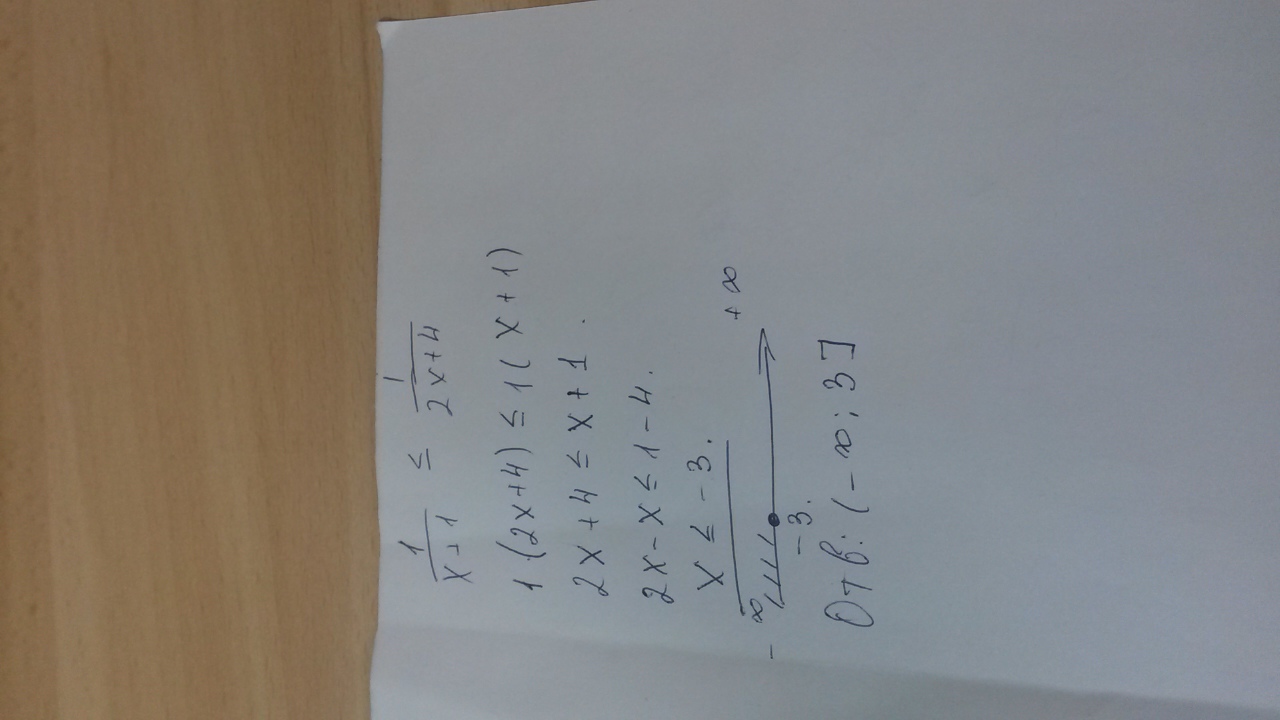 1/(x+1) ≤ 1/(2x+4)
1·(2x+4) ≤ 1(x+1)
2x+4 ≤ x+1.
2x-x ≤ 1-4.
x ≤ -3.
-∞ +∞
-3.
Отв: (-∞; 3]